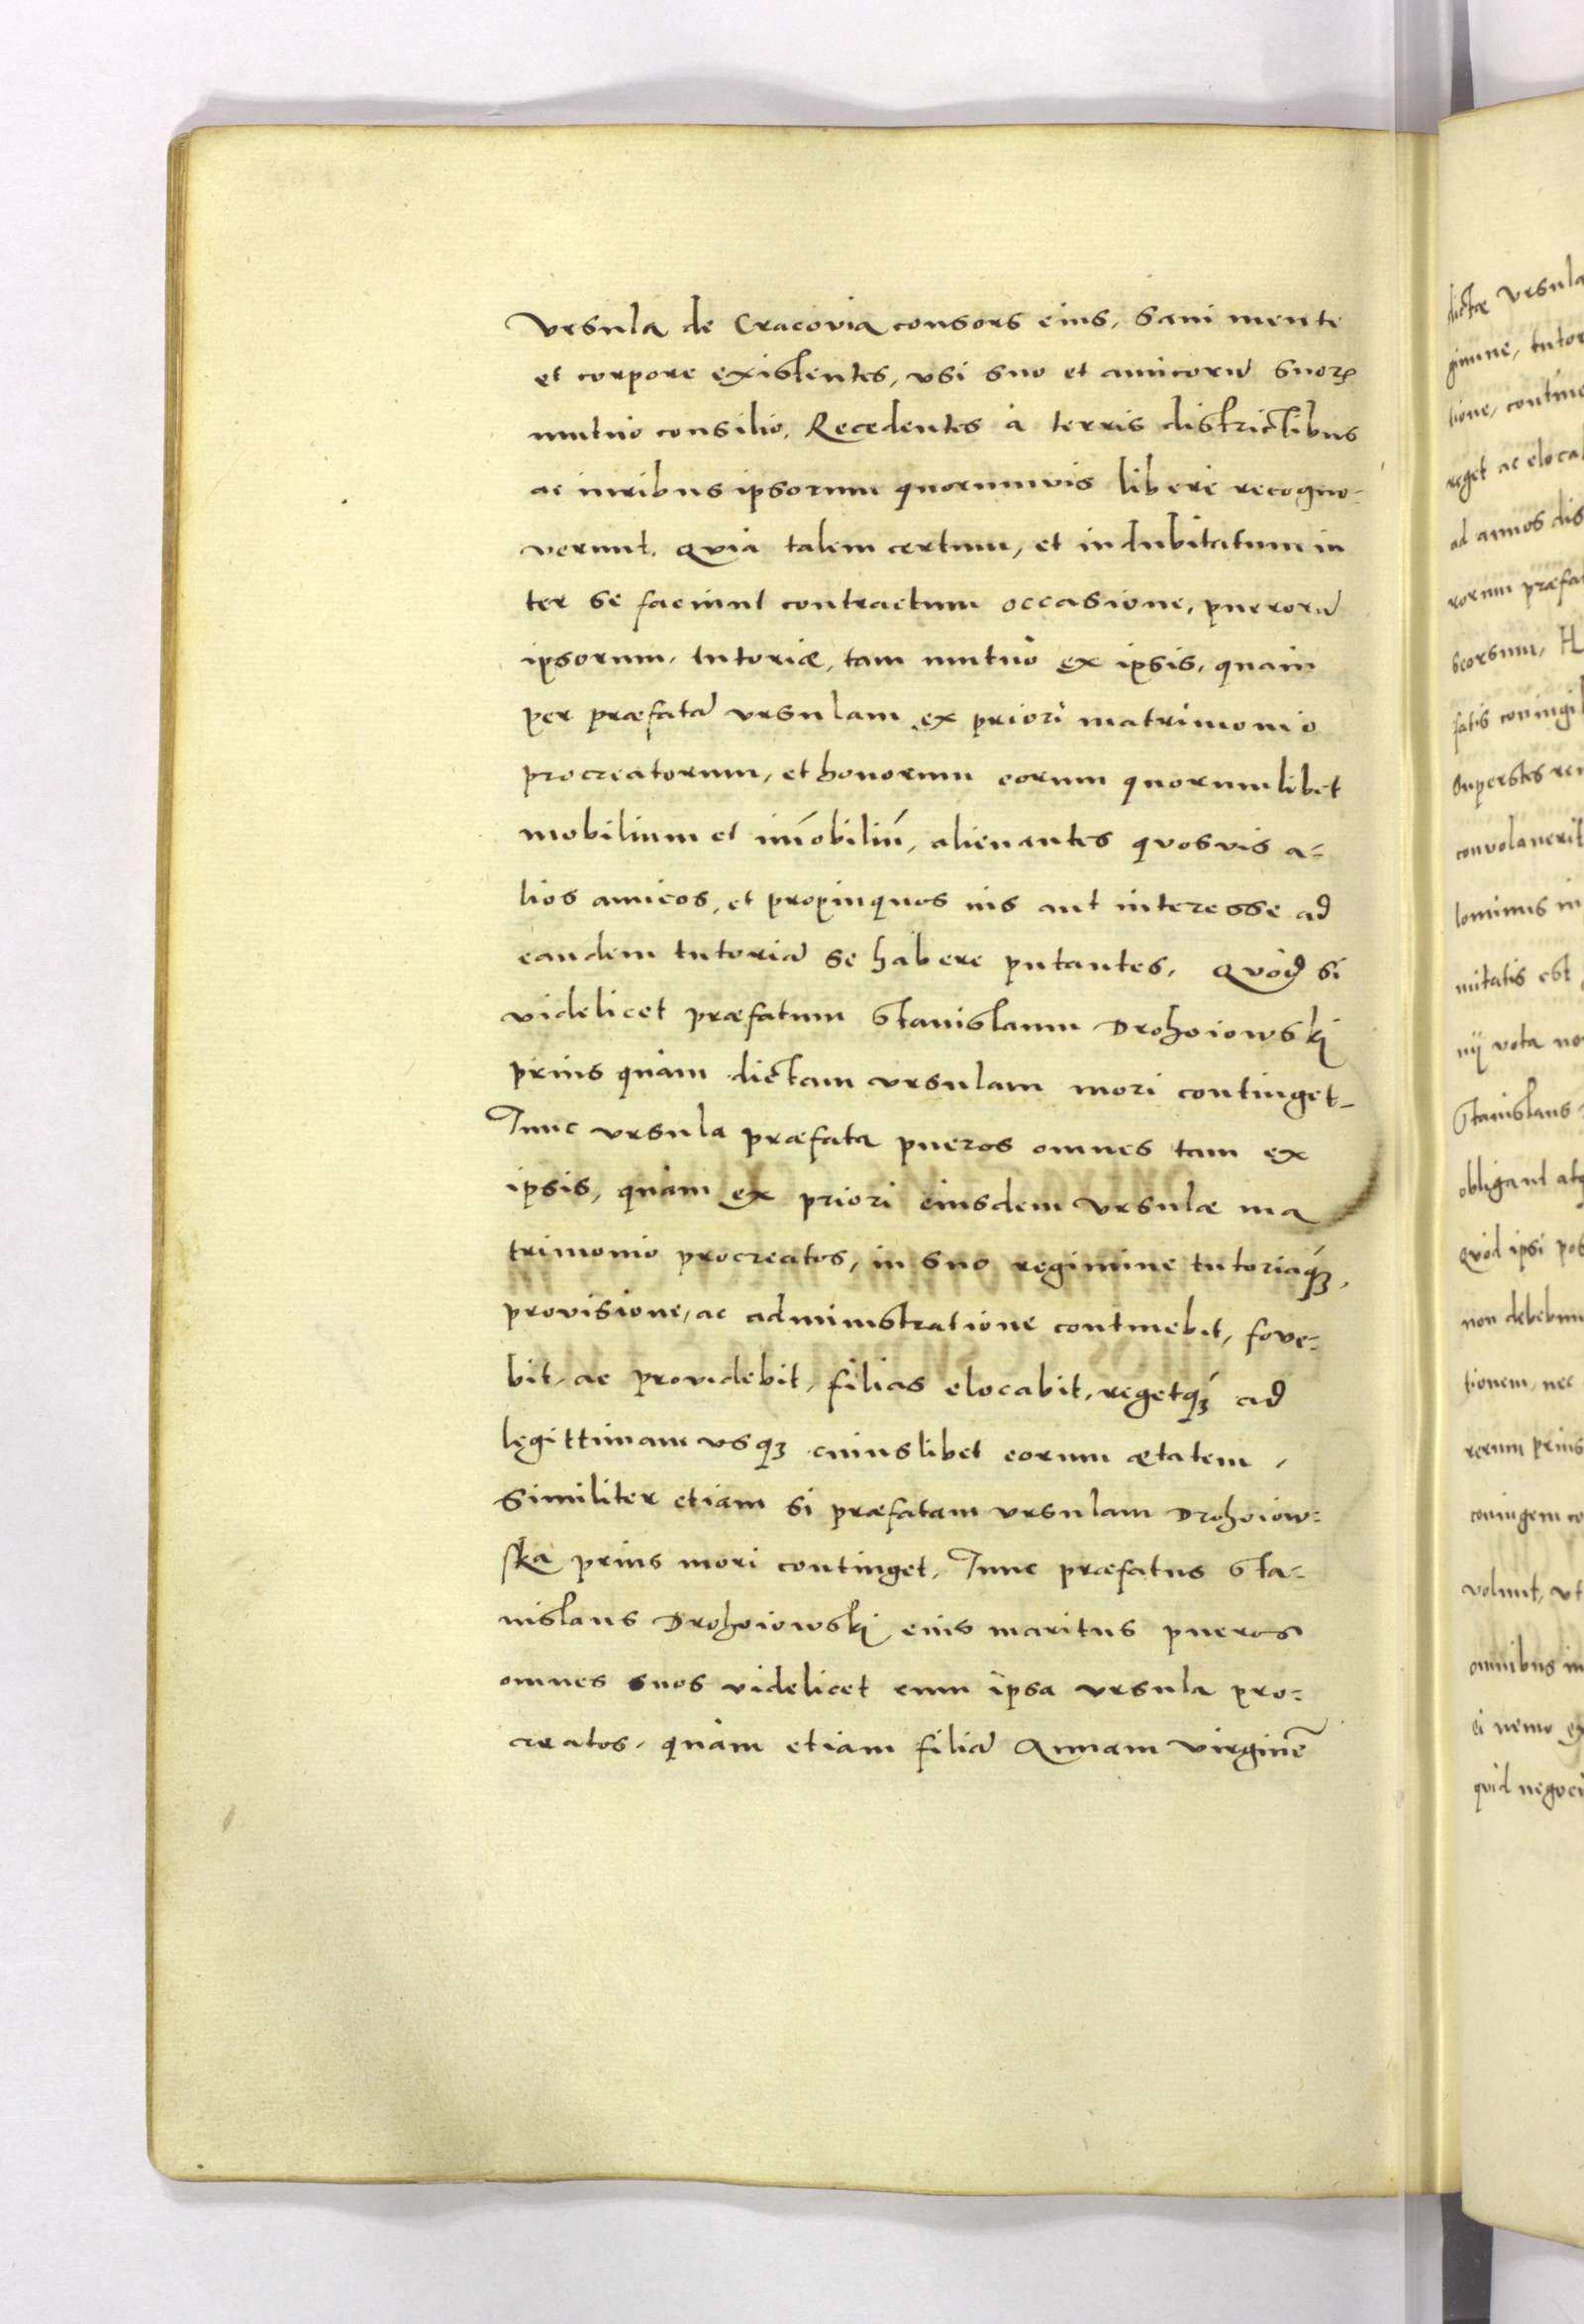 Vrsula de Cracovia consors eius, sani mente
et corpore existentes, vsi suo et amicorū suoꝝ
mutuo consilio, Recedentes à terris districtibus
ac iuribus ipsorum quorumvis liberè recogno-
verunt. Quia talem certum, et indubitatum in
ter se faciunt contractum occasione, puerorū
ipsorum, tutoriæ, tam mutuò ex ipsis, quàm
per præfatā vrsulam ex priori matrimonio
procreatorum, et bonorum eorum quorumlibet
mobilium et im̄obiliū, alienantes quosvis a=
lios amicos, et propinquos ius aut interesse ad
eandem tutoriā se habere putantes. Quòd si
videlicet præfatum Stanislaum Drohoiowski
prius quàm dictam vrsulam mori continget_
Tunc vrsula præfata pueros omnes tam ex
ipsis, quàm ex priori eiusdem Vrsulæ ma
trimonio procreatos, in suo regimine tutoriaqꝫ,
provisione, ac administratione continebit, fove=
bit, ac providebit, filias elocabit, regetqꝫ ad
legittimam vsqꝫ cuiuslibet eorum ætatem,
Similiter etiam si præfatam vrsulam Drohoiow=
ska prius mori continget, Tunc præfatus Sta=
nislaus Drohoiowski eius maritus pueros
omnes suos videlicet cum ipsa vrsula pro=
creatos, quàm etiam filiā Annam virginē
dictæ Vrsula
gimine, tutor
tione, contine
reget ac elocab
ad annos dis
rorum præfat
seorsum, H
fatis coniugib
superstes re
convolaverit
lominus in
nitatis est
nij vota no
Stanislaus
obligant atq
Quòd ipsi pos
non debebun
tionem, nec
rerum prius
coniugem co
volunt, vt
omnibus in
si nemo ex
quid negoci